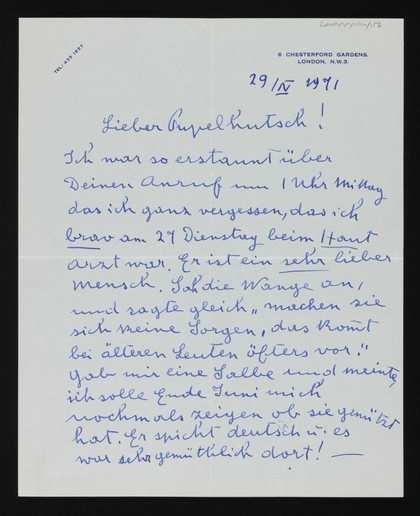 TEL: 435 1857
6 CHESTERFORD GARDENS.
LONDON, N.W.3.
29/IV 1971
Lieber Pupelhutsch!
Ich war so erstaunt über
Deinen Anruf um 1 Uhr Mittag
das ich ganz vergessen, das ich
brav am 27 Dienstag beim Haut
arzt war. Er ist ein sehr lieber
Mensch. Sah die Wange an,
und sagte gleich „machen sie
sich keine Sorgen, das komt
bei älteren Leuten öfters vor."
Gab mir eine Salbe und meinte,
ich solle Ende Juni mich
nochmals zeigen ob sie genützt
hat. Er spicht deutsch u. es
war sehr gemütklich dort! —